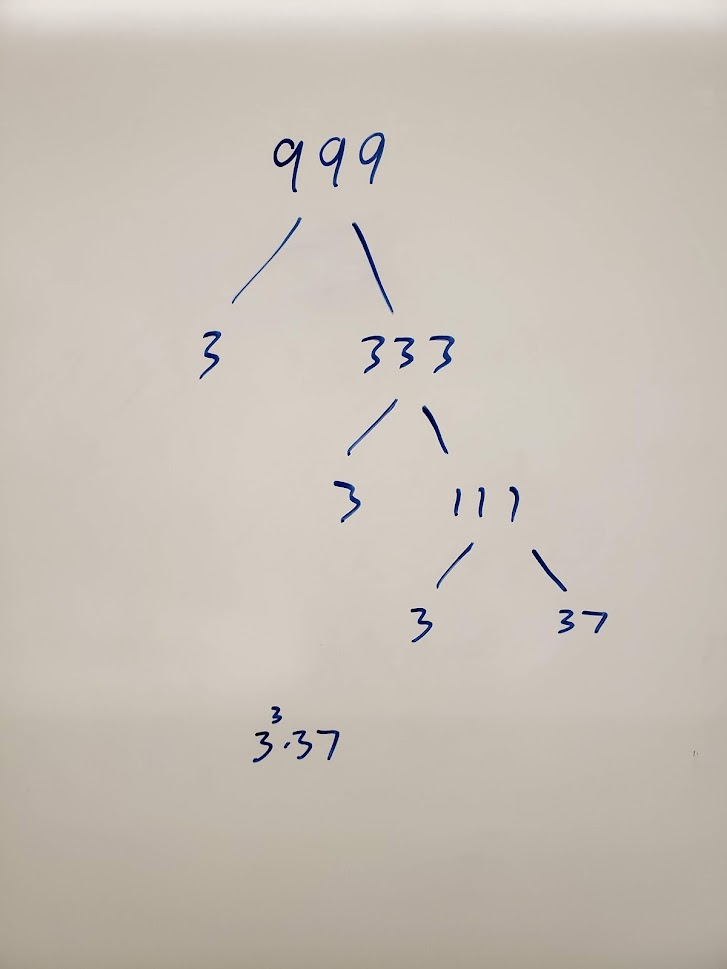 999
3 333
3 111
3 37
3³·37